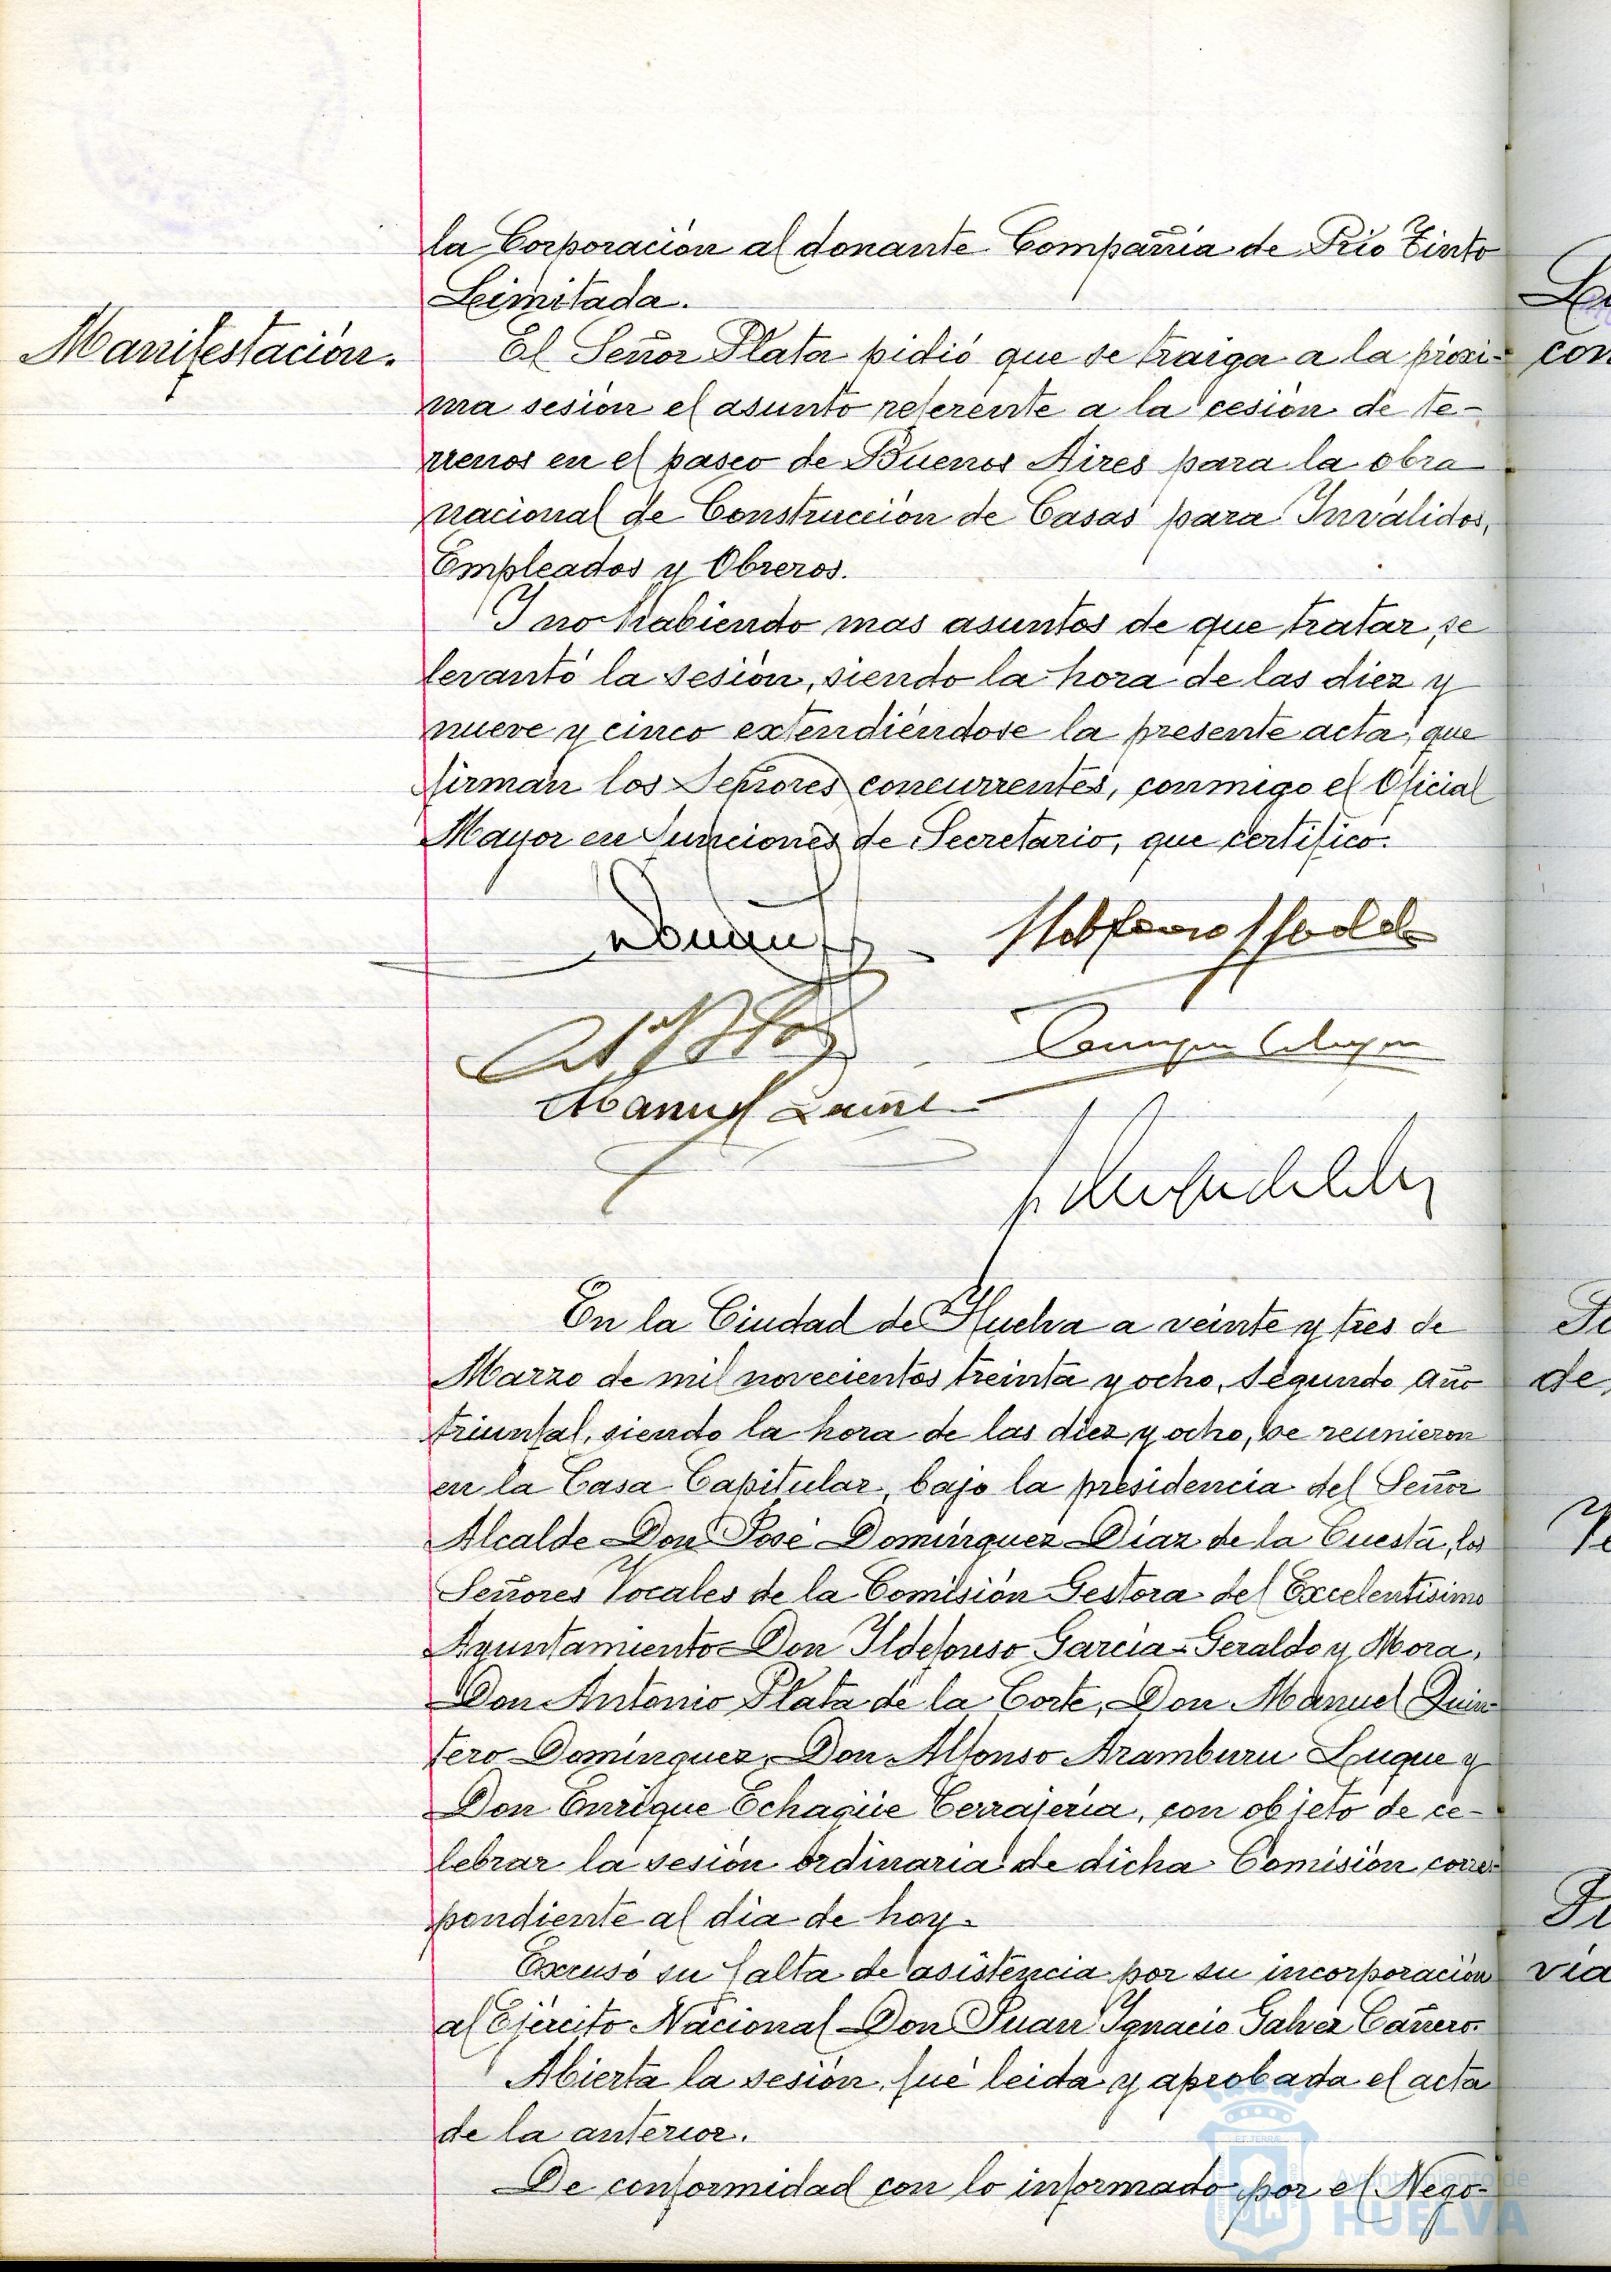 la Corporación al donante Compañia de Rio Tinto
Limitada.
Manifestación.
El Señor Plata pidió que se traiga a la próxi-
ma sesión el asunto referente a la cesión de te-
rrenos en el paseo de Buenos Aires para la obra
nacional de Construcción de Casas para Inválidos,
Empleados y Obreros.
Y no habiendo mas asuntos de que tratar, se
levantó la sesión, siendo la hora de las diez y
nueve y cinco extendiéndose la presente acta, que
firman los Señores concurrentes, conmigo el Oficial
Mayor en funciones de Secretario, que certifico.
Manuel
En la Ciudad de Huelva a veinte y tres de
Marzo de mil novecientos treinta y ocho, Segundo año
triunfal, siendo la hora de las diez y ocho, se reunieron
en la Casa Capitular, bajo la presidencia del Señor
Alcalde Don José Domínguez Díaz de la Cuesta, los
Señores Vocales de la Comisión Gestora del Excelentísimo
Ayuntamiento Don Ildefonso García-Geraldo y Mora,
Don Antonio Plata de la Corte, Don Manuel Quin-
tero Domínguez, Don Alfonso Aramburu Luque y
Don Enrique Echagüe Cerrajería, con objeto de ce-
lebrar la sesión ordinaria de dicha Comisión corres-
pondiente al día de hoy.
Excusó su falta de asistencia por su incorporación
al Ejército Nacional Don Juan Ignacio Galvez Cañero.
Abierta la sesión, fué leida y aprobada el acta
de la anterior.
De conformidad con lo informado por el Nego-
con
de
via
Ayuntamiento de
HUELVA